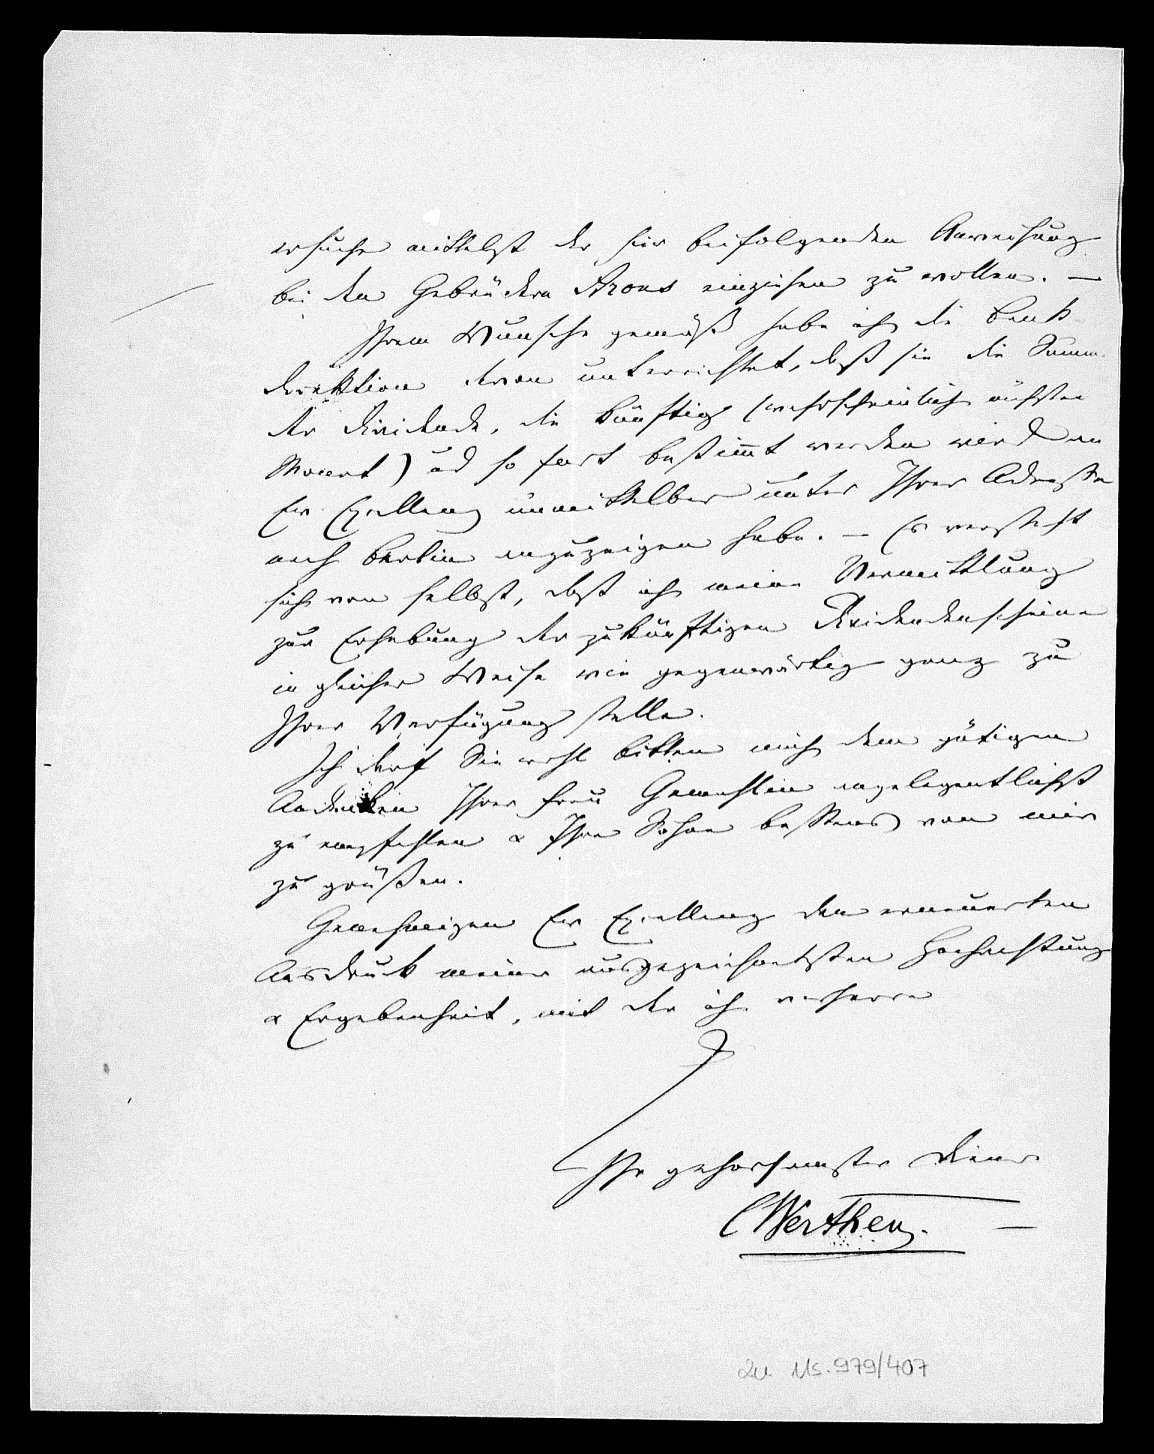 ersuche mittelst der hier beifolgenden Anweisung
bei den Gebrüdern Arons einziehen zu wollen. —
Ihrem Wunsche gemäß habe ich die Bank-
direktion davon unterrichtet, daß sie die Summe
der Dividende, die künftig (wahrscheinlich nächsten
Monat) und so fort bestimmt werden wird an
Ew. Excellenz unmittelbar unter Ihrer Adresse
nach Berlin anzuzeigen habe. — Es versteht
sich von selbst, daß ich meine Vermittlung
zur Erhebung der zukünftigen Dividendenscheine
in gleicher Weise wie gegenwärtig ganz zu
Ihrer Verfügung stelle.
Ich darf Sie wohl bitten mich dem gütigen
Andenken Ihrer Frau Gemahlin angelegentlichst
zu empfehlen & Ihre Söhne bestens von mir
zu grüßen.
Genehmigen Ew. Excellenz den erneuerten
Ausdruck meiner ausgezeichnetsten Hochachtung
& Ergebenheit, mit der ich verharre
Ihr gehorsamster Diener
CWerther.
zu Ms. 979/407